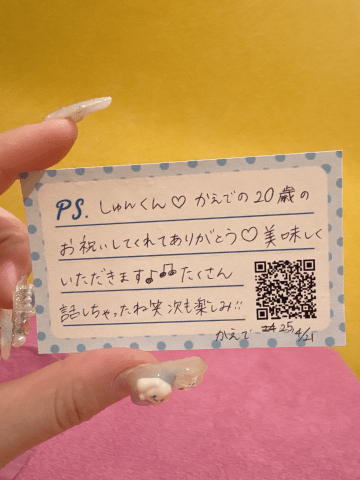 PS. しゅんくん♡ かえでの20歳の
お祝いしてくれてありがとう♡ 美味しく
いただきます♪♫ たくさん
話しちゃったね笑 次も楽しみ!!
かえで 25 4/21